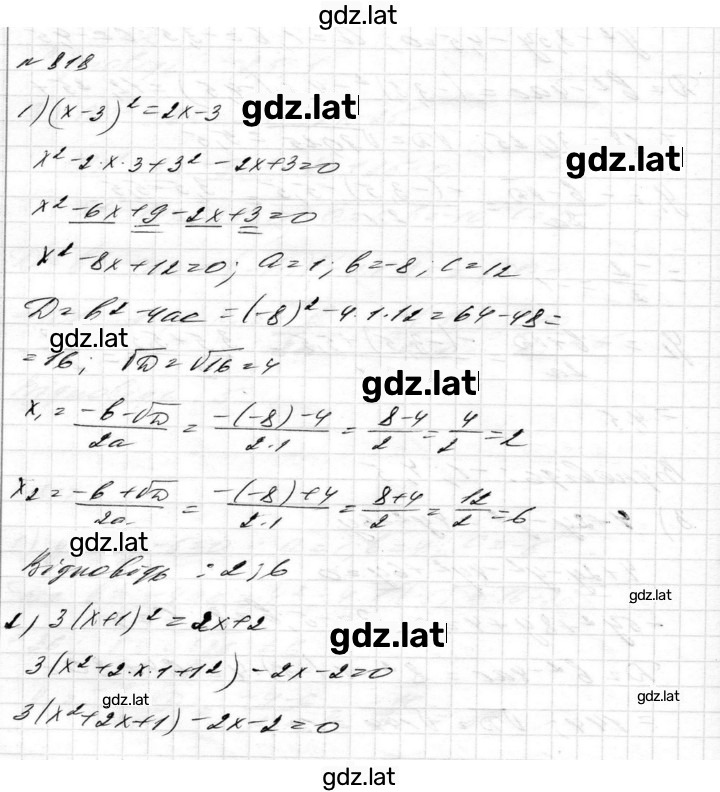 gdz.lat
№ 818
1) (x-3)² = 2x-3 gdz.lat
x² - 2·x·3 + 3² - 2x + 3 = 0 gdz.lat
x² - 6x + 9 - 2x + 3 = 0
x² - 8x + 12 = 0; a = 1; b = -8; c = 12
D = b² - 4ac = (-8)² - 4·1·12 = 64 - 48 =
gdz.lat
= 16; √D = √16 = 4
gdz.lat
x₁ = (-b - √D)/(2a) = (-(-8) - 4)/(2·1) = (8-4)/2 = 4/2 = 2
x₂ = (-b + √D)/(2a) = (-(-8) + 4)/(2·1) = (8+4)/2 = 12/2 = 6
gdz.lat
Відповідь: 2; 6
gdz.lat
2) 3(x+1)² = 2x+2
gdz.lat
3(x² + 2·x·1 + 1²) - 2x - 2 = 0
gdz.lat gdz.lat
3(x² + 2x + 1) - 2x - 2 = 0
gdz.lat